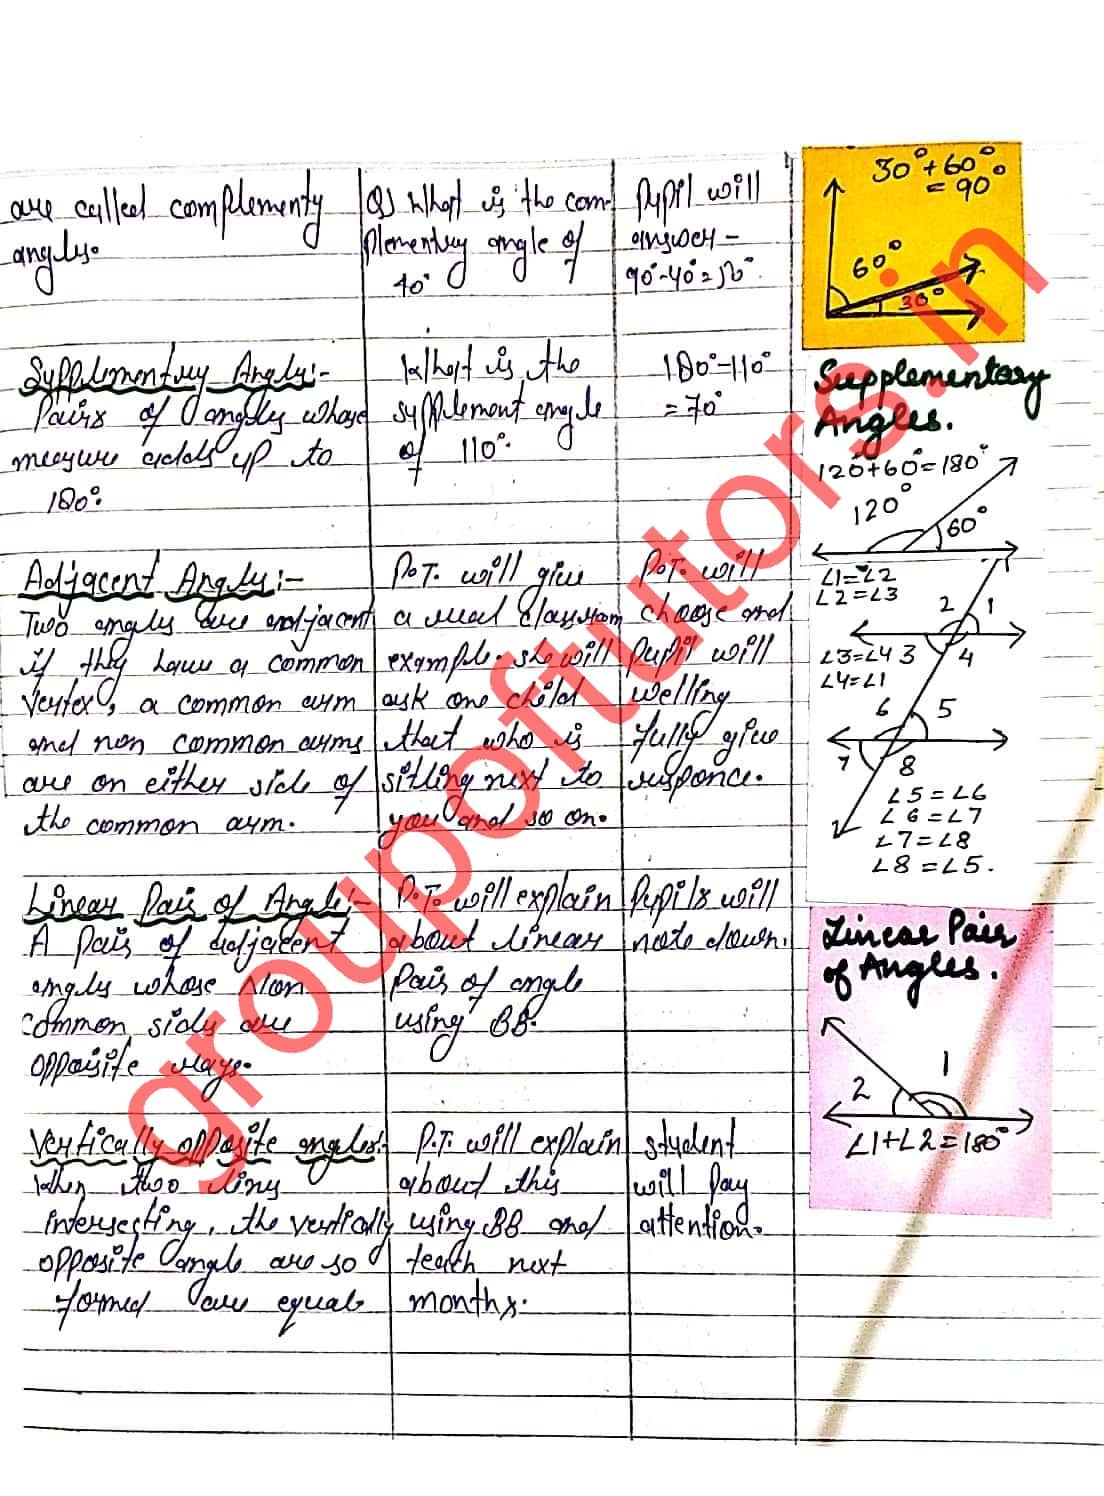 are called complementy
angles.
Q) What is the com-
plementry angle of
40°
Pupil will
answer -
90°-40°=50°.
30°+60°
= 90°
60°
30°
Supplementry Angles:-
Pairs of angles whose
measure adds up to
180°.
What is the
supplement angle
of 110°.
180°-110°
=70°
Supplementary
Angles.
120°+60°=180°
120°
60°
Adjacent Angles:-
Two angles are adjacent
if they have a common
vertex, a common arm
and non common arms
are on either side of
the common arm.
P.T. will give
a real classroom
example. she will
ask one child
that who is
sitling next to
you and so on.
P.T. will
choose and
pupil will
welling
fully give
responce.
∠1=∠2
∠2=∠3
2 1
∠3=∠4 3 4
∠4=∠1
6 5
7 8
∠5=∠6
∠6=∠7
∠7=∠8
∠8=∠5.
Linear Pair of Angle:-
A pair of adjacent
angles whose non
common sides are
opposite rays.
P.T. will explain
about linear
Pair of angle
using BB.
Pupils will
note down.
Linear Pair
of Angles.
1
2
∠1+∠2=180°
Vertically opposite angles:-
When two lines
intersecting, the vertically
opposite angle are so
formed are equal
P.T. will explain
about this
using BB and
teach next
months.
student
will pay
attention.
groupoftutors.in